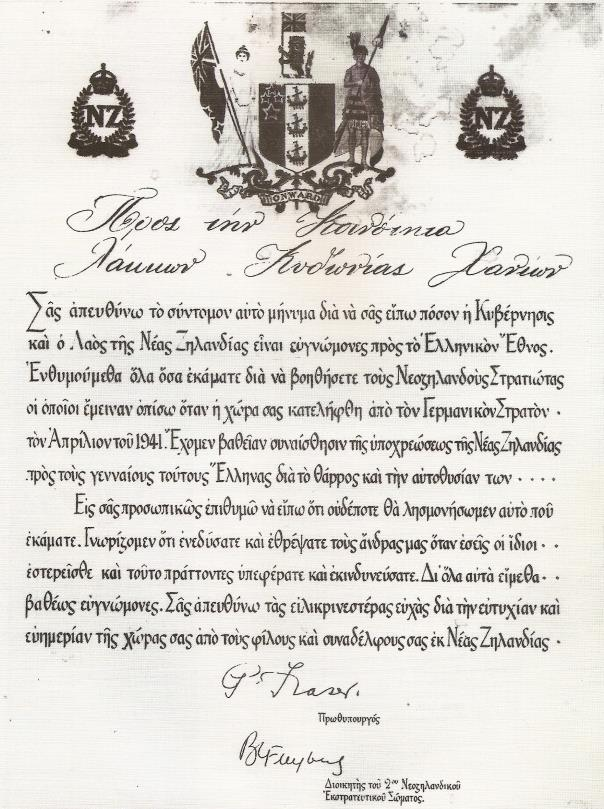 NZ
NZ
ONWARD
Προς την Κοινότητα
Λάκκων Κυδωνίας Χανίων
Σᾶς ἀπευθύνω τὸ σύντομον αὐτὸ μήνυμα διὰ νὰ σᾶς εἴπω πόσον ἡ Κυβέρνησις
καὶ ὁ Λαὸς τῆς Νέας Ζηλανδίας εἶναι εὐγνώμονες πρὸς τὸ Ἑλληνικὸν Ἔθνος.
Ἐνθυμούμεθα ὅλα ὅσα ἐκάματε διὰ νὰ βοηθήσετε τοὺς Νεοζηλανδοὺς Στρατιώτας
οἱ ὁποῖοι ἔμειναν ὀπίσω ὅταν ἡ χώρα σας κατελήφθη ἀπὸ τὸν Γερμανικὸν Στρατὸν ·
τὸν Ἀπρίλιον τοῦ 1941. Ἔχομεν βαθεῖαν συναίσθησιν τῆς ὑποχρεώσεως τῆς Νέας Ζηλανδίας
πρὸς τοὺς γενναίους τούτους Ἕλληνας διὰ τὸ θάρρος καὶ τὴν αὐτοθυσίαν των · · · ·
Εἰς σᾶς προσωπικῶς ἐπιθυμῶ νὰ εἴπω ὅτι οὐδέποτε θὰ λησμονήσωμεν αὐτὸ ποῦ
ἐκάματε. Γνωρίζομεν ὅτι ἐνεδύσατε καὶ ἐθρέψατε τοὺς ἄνδρας μας ὅταν ἐσεῖς οἱ ἴδιοι · ·
ἐστερεῖσθε καὶ τοῦτο πράττοντες ὑπεφέρατε καὶ ἐκινδυνεύσατε. Δι᾽ ὅλα αὐτὰ εἴμεθα · ·
βαθέως εὐγνώμονες. Σᾶς ἀπευθύνω τὰς εἰλικρινεστέρας εὐχὰς διὰ τὴν εὐτυχίαν καὶ
εὐημερίαν τῆς χώρας σας ἀπὸ τοὺς φίλους καὶ συναδέλφους σας ἐκ Νέας Ζηλανδίας ·
P. Fraser.
Πρωθυπουργός
B C Freyberg
Διοικητὴς τοῦ 2ου Νεοζηλανδικοῦ
Ἐκστρατευτικοῦ Σώματος.